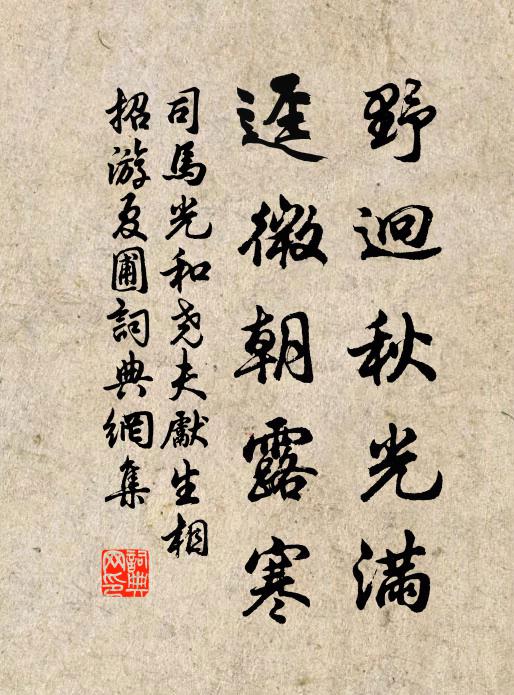 野迥秋光滿
逕微朝露寒
司馬光和尧夫獻生相
招游夏圃詞典網集
詞典
网印